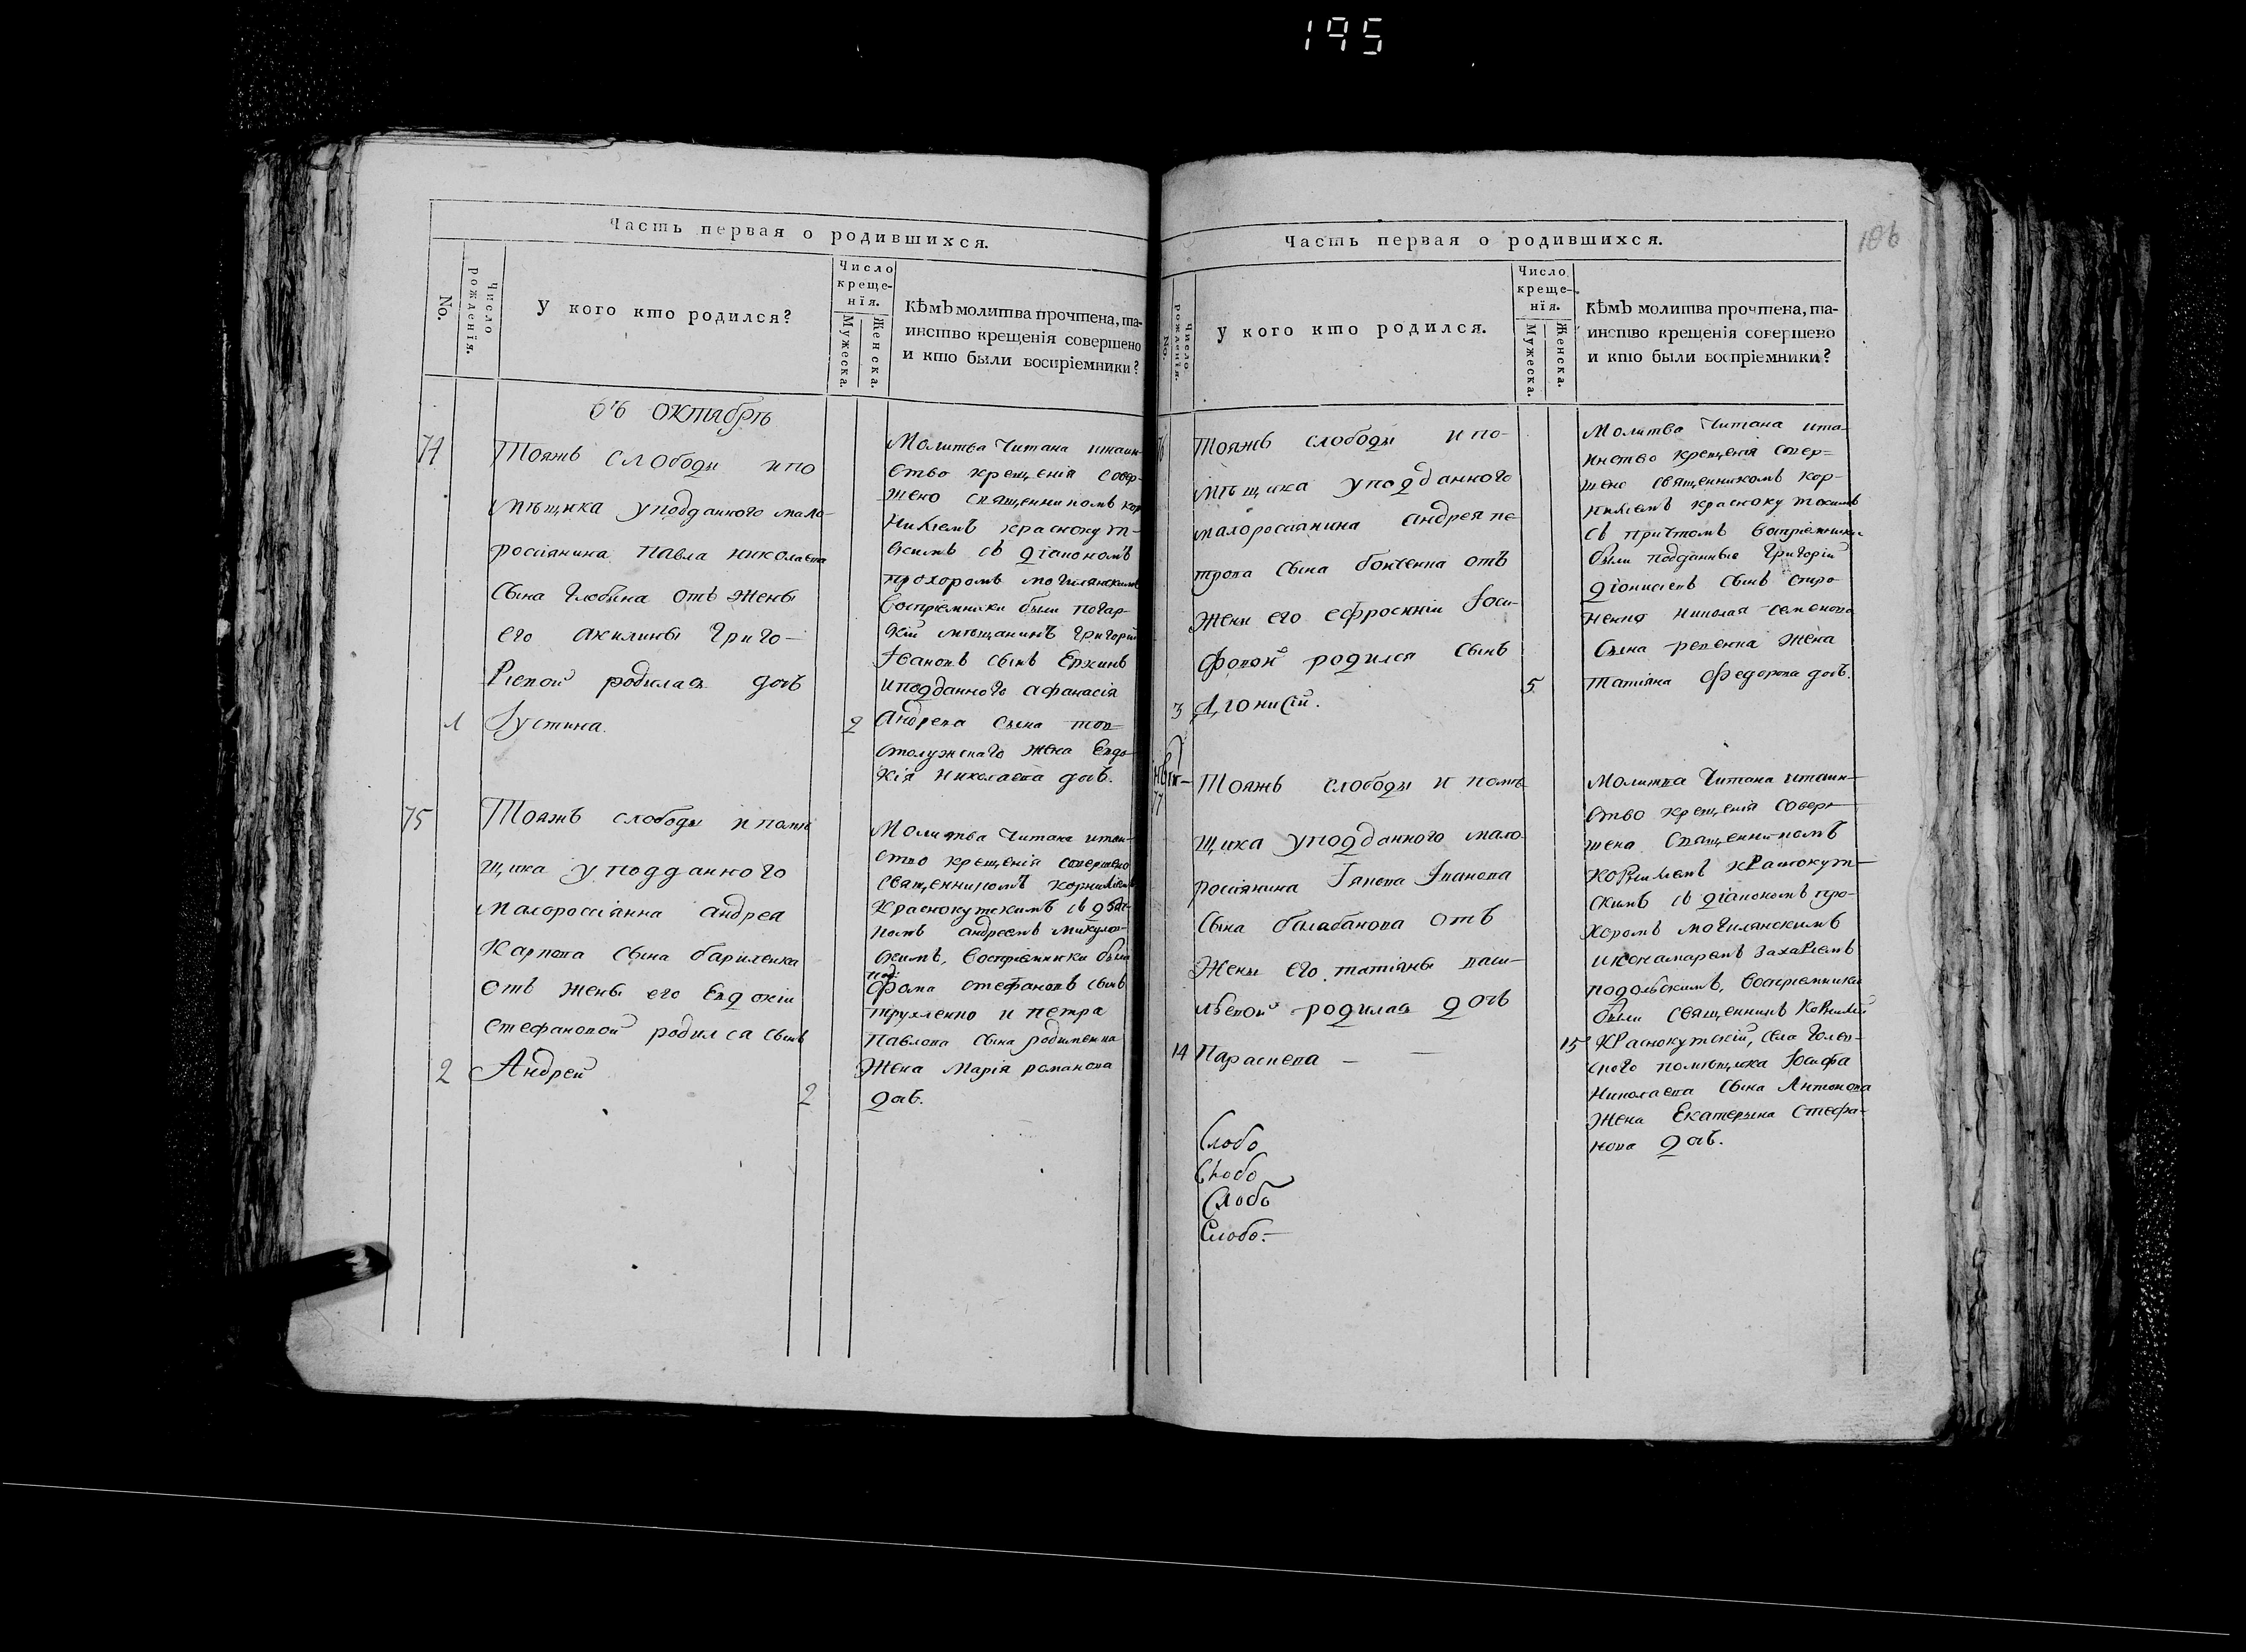 195
Часть первая о родившихся.
No.
Число рожденія.
У кого кто родился?
Число
креще-
нія.
Мужеска.
Женска.
Кѣмъ молитва прочтена, та-
инство крещенія совершено
и кто были воспріемники?
Въ октябрѣ
74
Тояжъ слободы и по
мѣщика у подданного мало-
россіянина Павла Николаева
Сына Глобина отъ жены
его Акилины Григо-
Рьевой родилася дочь
1
Іустина.
2
Молитва Читана и таин-
ство крещенія совер-
шено священникомъ Кор
ниліемъ Краснокут-
скимъ съ діакономъ
Прохоромъ Могилянскимъ
Воспріемники были погар-
скій мѣщанинъ Григорій
Ивановъ сынъ
и подданного Афанасія
Андреева сына
жена Евдо-
кія Николаева дочь.
75
Тояжъ слободы и помѣ
щика у подданного
Малороссіянина Андрея
Карпова сына Бариленка
Отъ жены его Евдокіи
Стефановой родился сынъ
2
Андрей
2
Молитва Читана и таин-
ство крещенія совершено
священникомъ Корниліемъ
Краснокутскимъ съ діако-
номъ Андреемъ
скимъ, Воспріемники были
под:
Фома Стефановъ сынъ
и Петра
Павлова сына
Жена Марія Романова
дочь.
Часть первая о родившихся.
106
No.
Число рожденія.
У кого кто родился.
Число
креще-
нія.
Мужеска.
Женска.
Кѣмъ молитва прочтена, та-
инство крещенія совершено
и кто были воспріемники?
76
Тояжъ слободы и по-
мѣщика у подданного
малороссіянина Андрея Пе
трова сына Бонченка отъ
Жены его Ефросиніи Іоси-
фовой родился сынъ
3
Діонисій.
5
Молитва Читана и та-
инство крещенія совер-
шено священникомъ Кор-
ниліемъ Краснокутскимъ
съ причтомъ воспріемники
были подданные Григорій
Діонисіевъ сынъ
Николая Семенова
Сына жена
Татіана Федорова дочь.
77
Тояжъ слободы и помѣ
щика у подданного мало
россіянина Іакова Иванова
Сына Балабанова отъ
Жены его Татіаны Васи-
льевой родилася дочь
14
Параскева —
15
Молитва Читана и таин-
ство крещенія совер-
шено Священникомъ
Корниліемъ Краснокут-
скимъ съ діакономъ Про-
хоромъ Могилянскимъ
и пономаремъ Захаріемъ
Подольскимъ, Воспріемники
были священникъ Корнилій
Краснокутскій, села
помѣщика Іосифа
Николаева сына Антонова
жена Екатерина Стефа-
нова дочь.
Слобо
Слобо
Слобо
Слобо.—